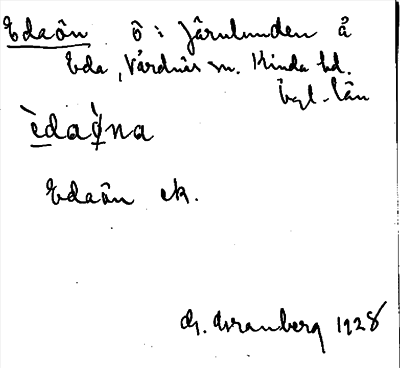 Edaön ö i Järnlunden å
Eda, Vårdnäs sn. Kinda hd.
Ögl. län
èdaø̀na
Edaön ek.
G. Granberg 1928